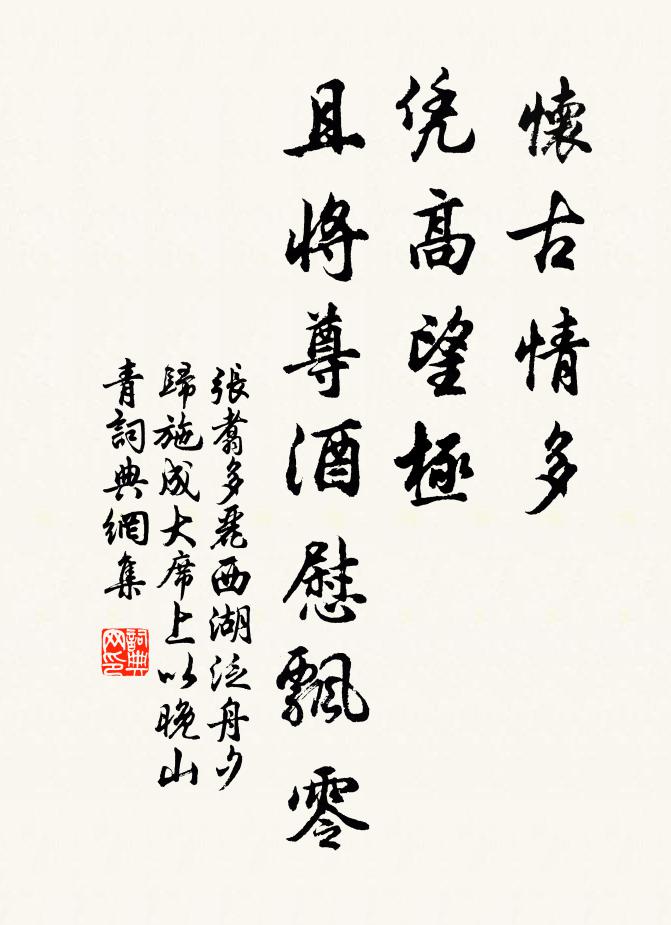 懷古情多
凭高望極
且將尊酒慰飄零
張翥多麗西湖泛舟夕
歸施成大席上以晚山
青詞典網集
詞典网印